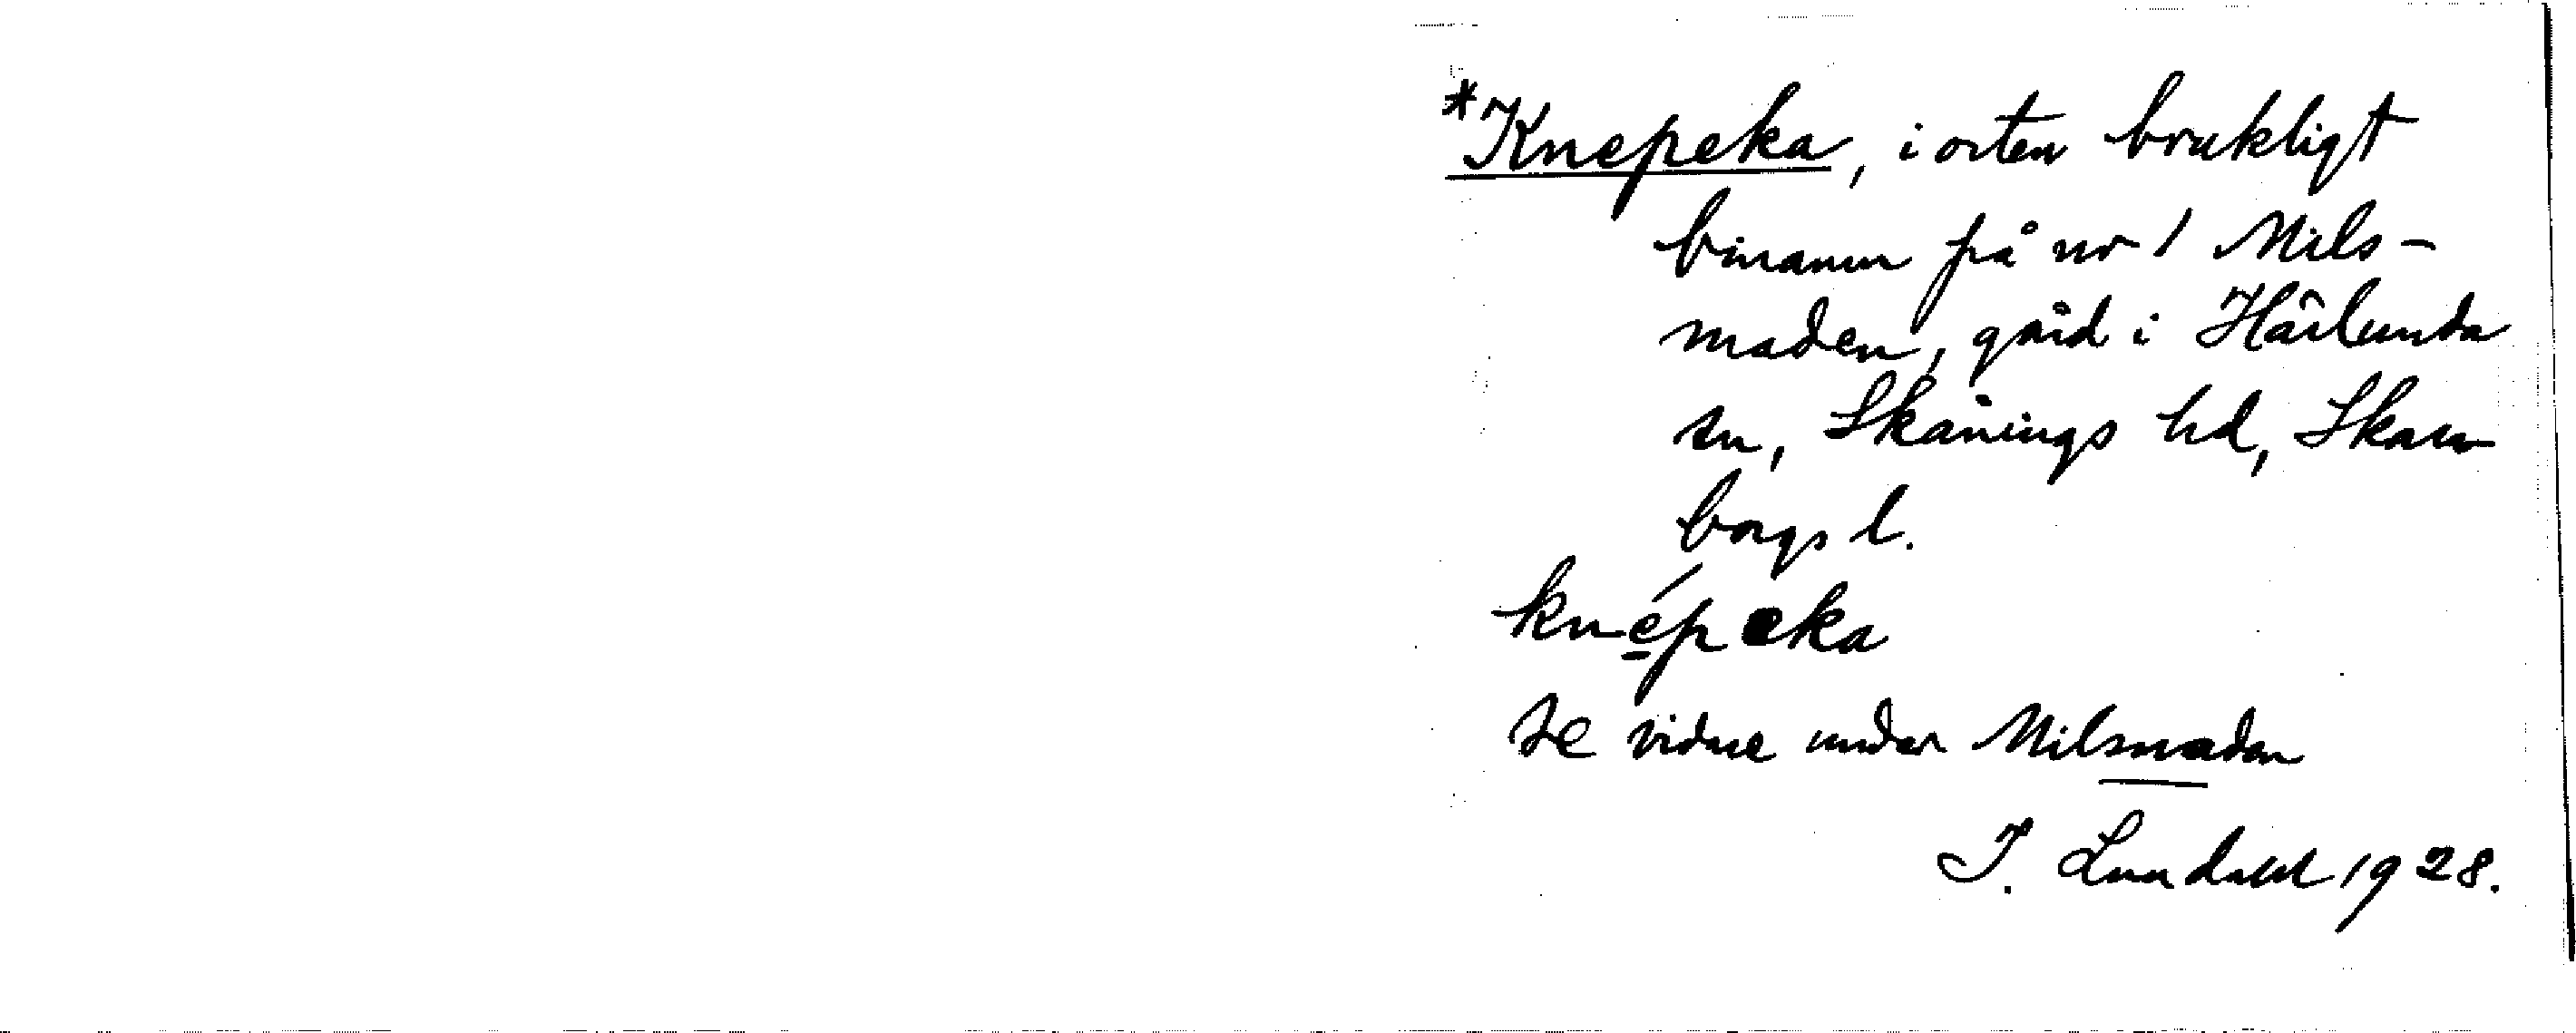 *Knepeka, i orten brukligt
binamn på nr 1 Mils-
maden, gård i Härlunda
sn, Skånings hd, Skara-
borgs l.
knépeka
se vidare under Milsmaden
I. Lundahl 1928.